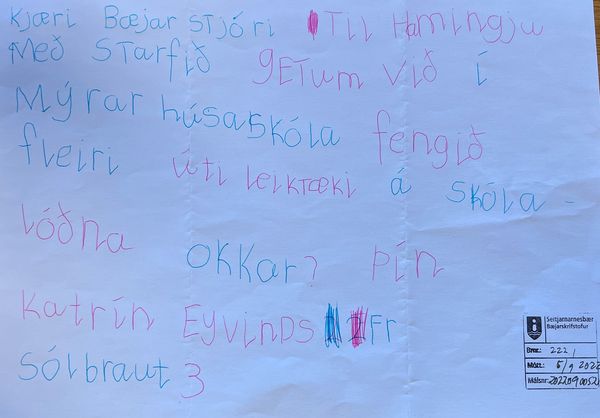 Kjæri Bæjar stjóri Til Hamingju
Með Starfið getum við í
Mýrar húsaskóla fengið
fleiri úti leiktæki á skóla-
lóðna okkar? þín
Katrín Eyvinds 2Fr
Sólbraut 3
Seltjarnarnesbær
Bæjarskrifstofur
Brnr.: 222,
Mótt.: 5/9 2022
Málsnr.: 2022090052